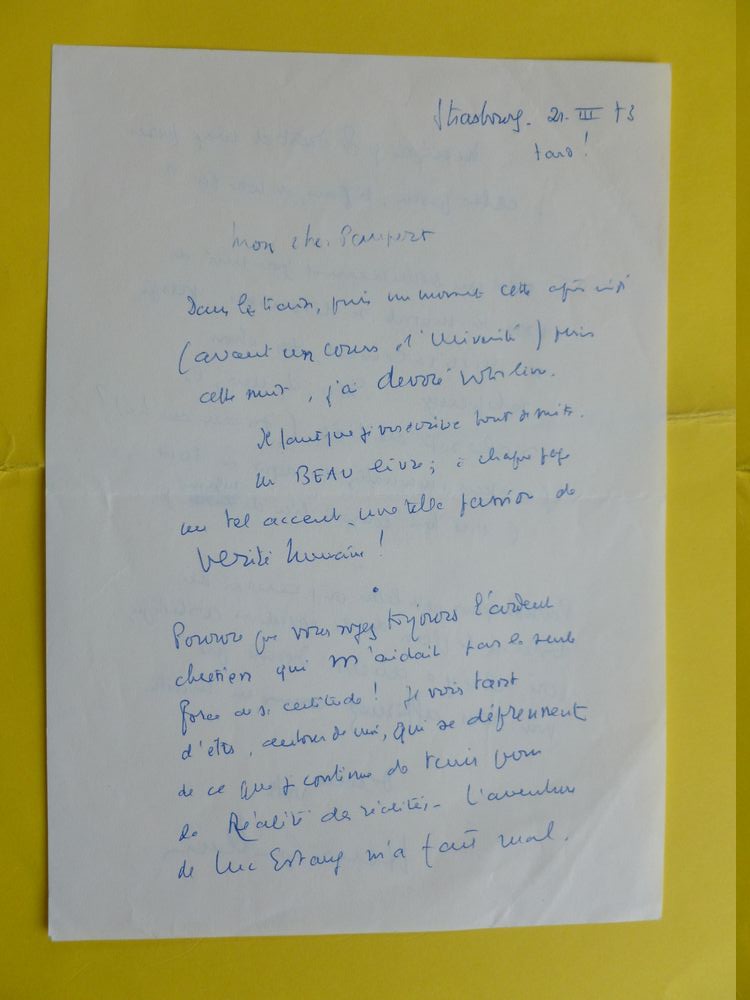 Strasbourg. 21. III 73
tard!
Mon cher
Dans le train, puis un moment cette après midi
(avant un cours à l'Université) puis
cette nuit, j'ai dévoré votre livre.
Il faut que je vous écrive tout de suite.
Un BEAU livre; à chaque page
un tel accent, une telle passion de
vérité humaine!
Pourvu que vous soyez toujours l'ardent
chrétien qui m'aidait par la seule
force de sa certitude! Je vois tant
d'êtres, autour de moi, qui se déprennent
de ce que je continue de tenir pour
la Réalité des réalités. L'aventure
de Luc Estang m'a fait mal.